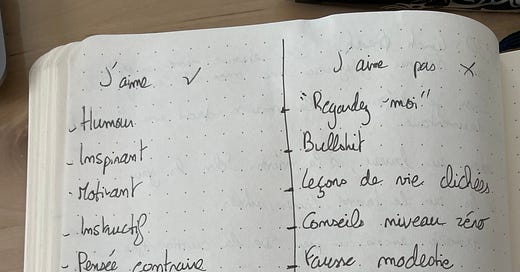 J'aime ✓
- Humour
- Inspirant
- Motivant
- Instructif
- Pensée contraire
J'aime pas ×
- "Regardez-moi"
- Bullshit
- Leçons de vie clichées
- Conseils niveau zéro
- Fausse modestie